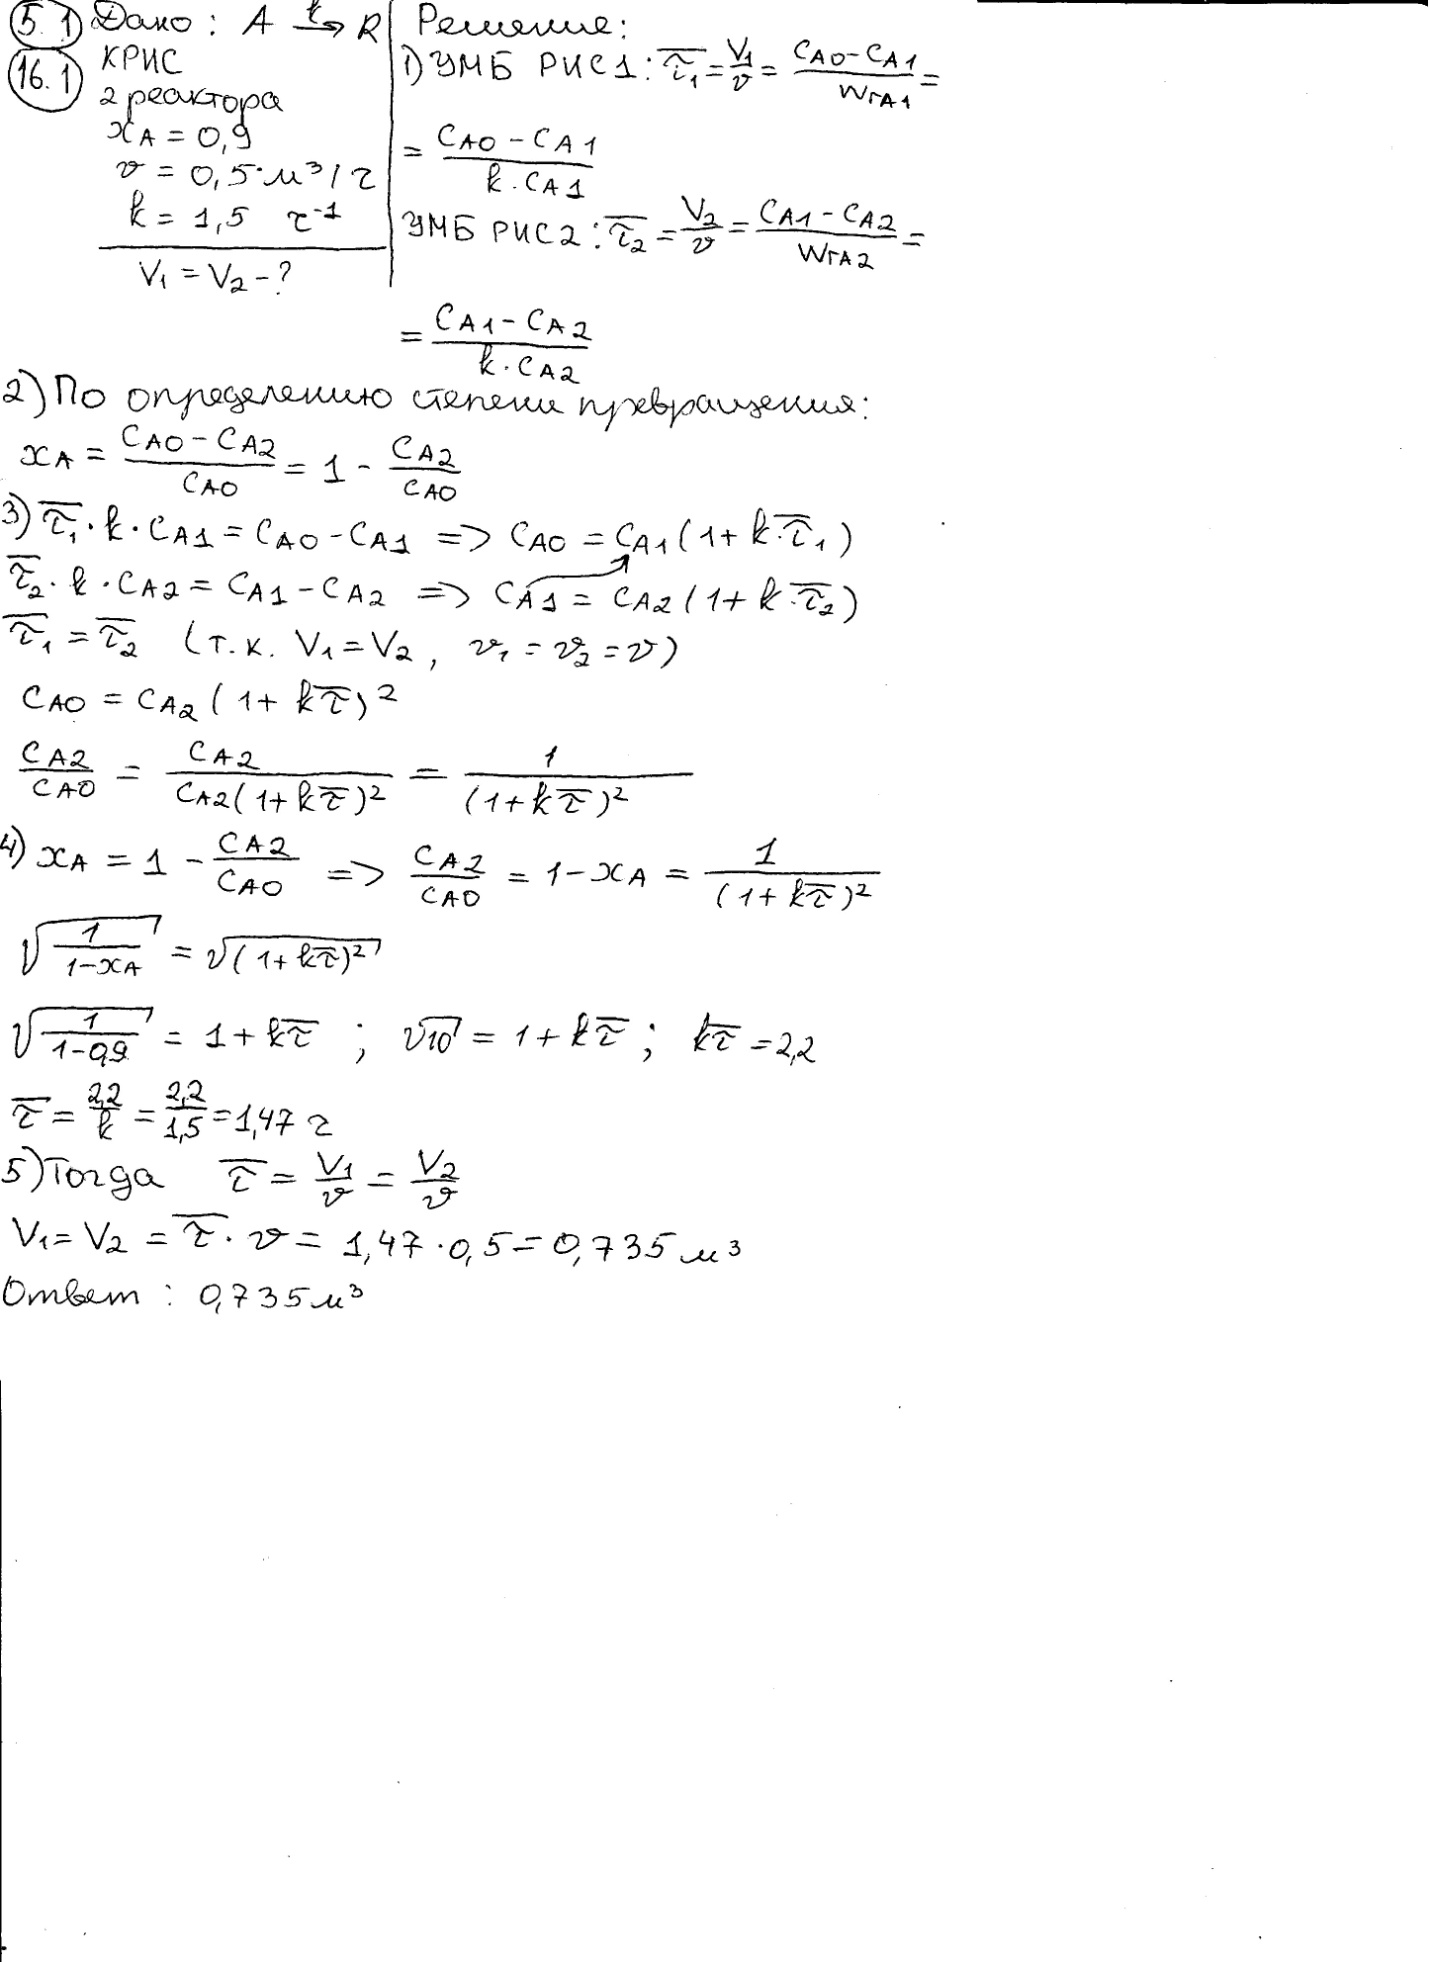 5.1 Дано: A →k R
16.1 КРИС
2 реактора
xA = 0,9
v = 0,5 м³/ч
k = 1,5 ч⁻¹
V₁ = V₂ - ?
Решение:
1) УМБ РИС1: τ̅₁ = V₁/v = (CA0 - CA1)/WrA1 =
= (CA0 - CA1)/(k · CA1)
УМБ РИС2: τ̅₂ = V₂/v = (CA1 - CA2)/WrA2 =
= (CA1 - CA2)/(k · CA2)
2) По определению степени превращения:
xA = (CA0 - CA2)/CA0 = 1 - CA2/CA0
3) τ̅₁ · k · CA1 = CA0 - CA1 => CA0 = CA1(1 + k·τ̅₁)
τ̅₂ · k · CA2 = CA1 - CA2 => CA1 = CA2(1 + k·τ̅₂)
τ̅₁ = τ̅₂ (т.к. V₁ = V₂, v₁ = v₂ = v)
CA0 = CA2(1 + kτ̅)²
CA2/CA0 = CA2/(CA2(1 + kτ̅)²) = 1/(1 + kτ̅)²
4) xA = 1 - CA2/CA0 => CA2/CA0 = 1 - xA = 1/(1 + kτ̅)²
√(1/(1 - xA)) = √((1 + kτ̅)²)
√(1/(1 - 0,9)) = 1 + kτ̅ ; √10 = 1 + kτ̅ ; kτ̅ = 2,2
τ̅ = 2,2/k = 2,2/1,5 = 1,47 ч
5) Тогда τ̅ = V₁/v = V₂/v
V₁ = V₂ = τ̅ · v = 1,47 · 0,5 = 0,735 м³
Ответ: 0,735 м³